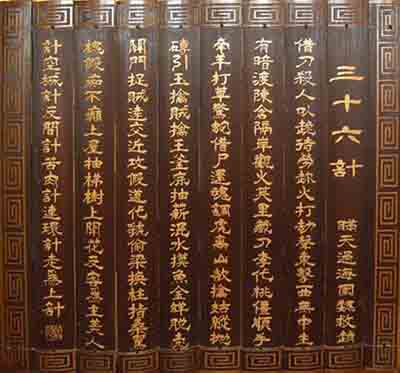 三十六計
瞞天過海圍魏救趙
借刀殺人以逸待勞趁火打劫聲東擊西無中生
有暗渡陳倉隔岸觀火笑里藏刀李代桃僵順手
牽羊打草驚蛇借尸還魂調虎离山欲擒姑縱拋
磚引玉擒賊擒王釜底抽薪混水摸魚金蟬脫殼
關門捉賊遠交近攻假道伐虢偷梁換柱指桑罵
槐假痴不癲上屋抽梯樹上開花反客為主美人
計空城計反間計苦肉計連環計走為上計